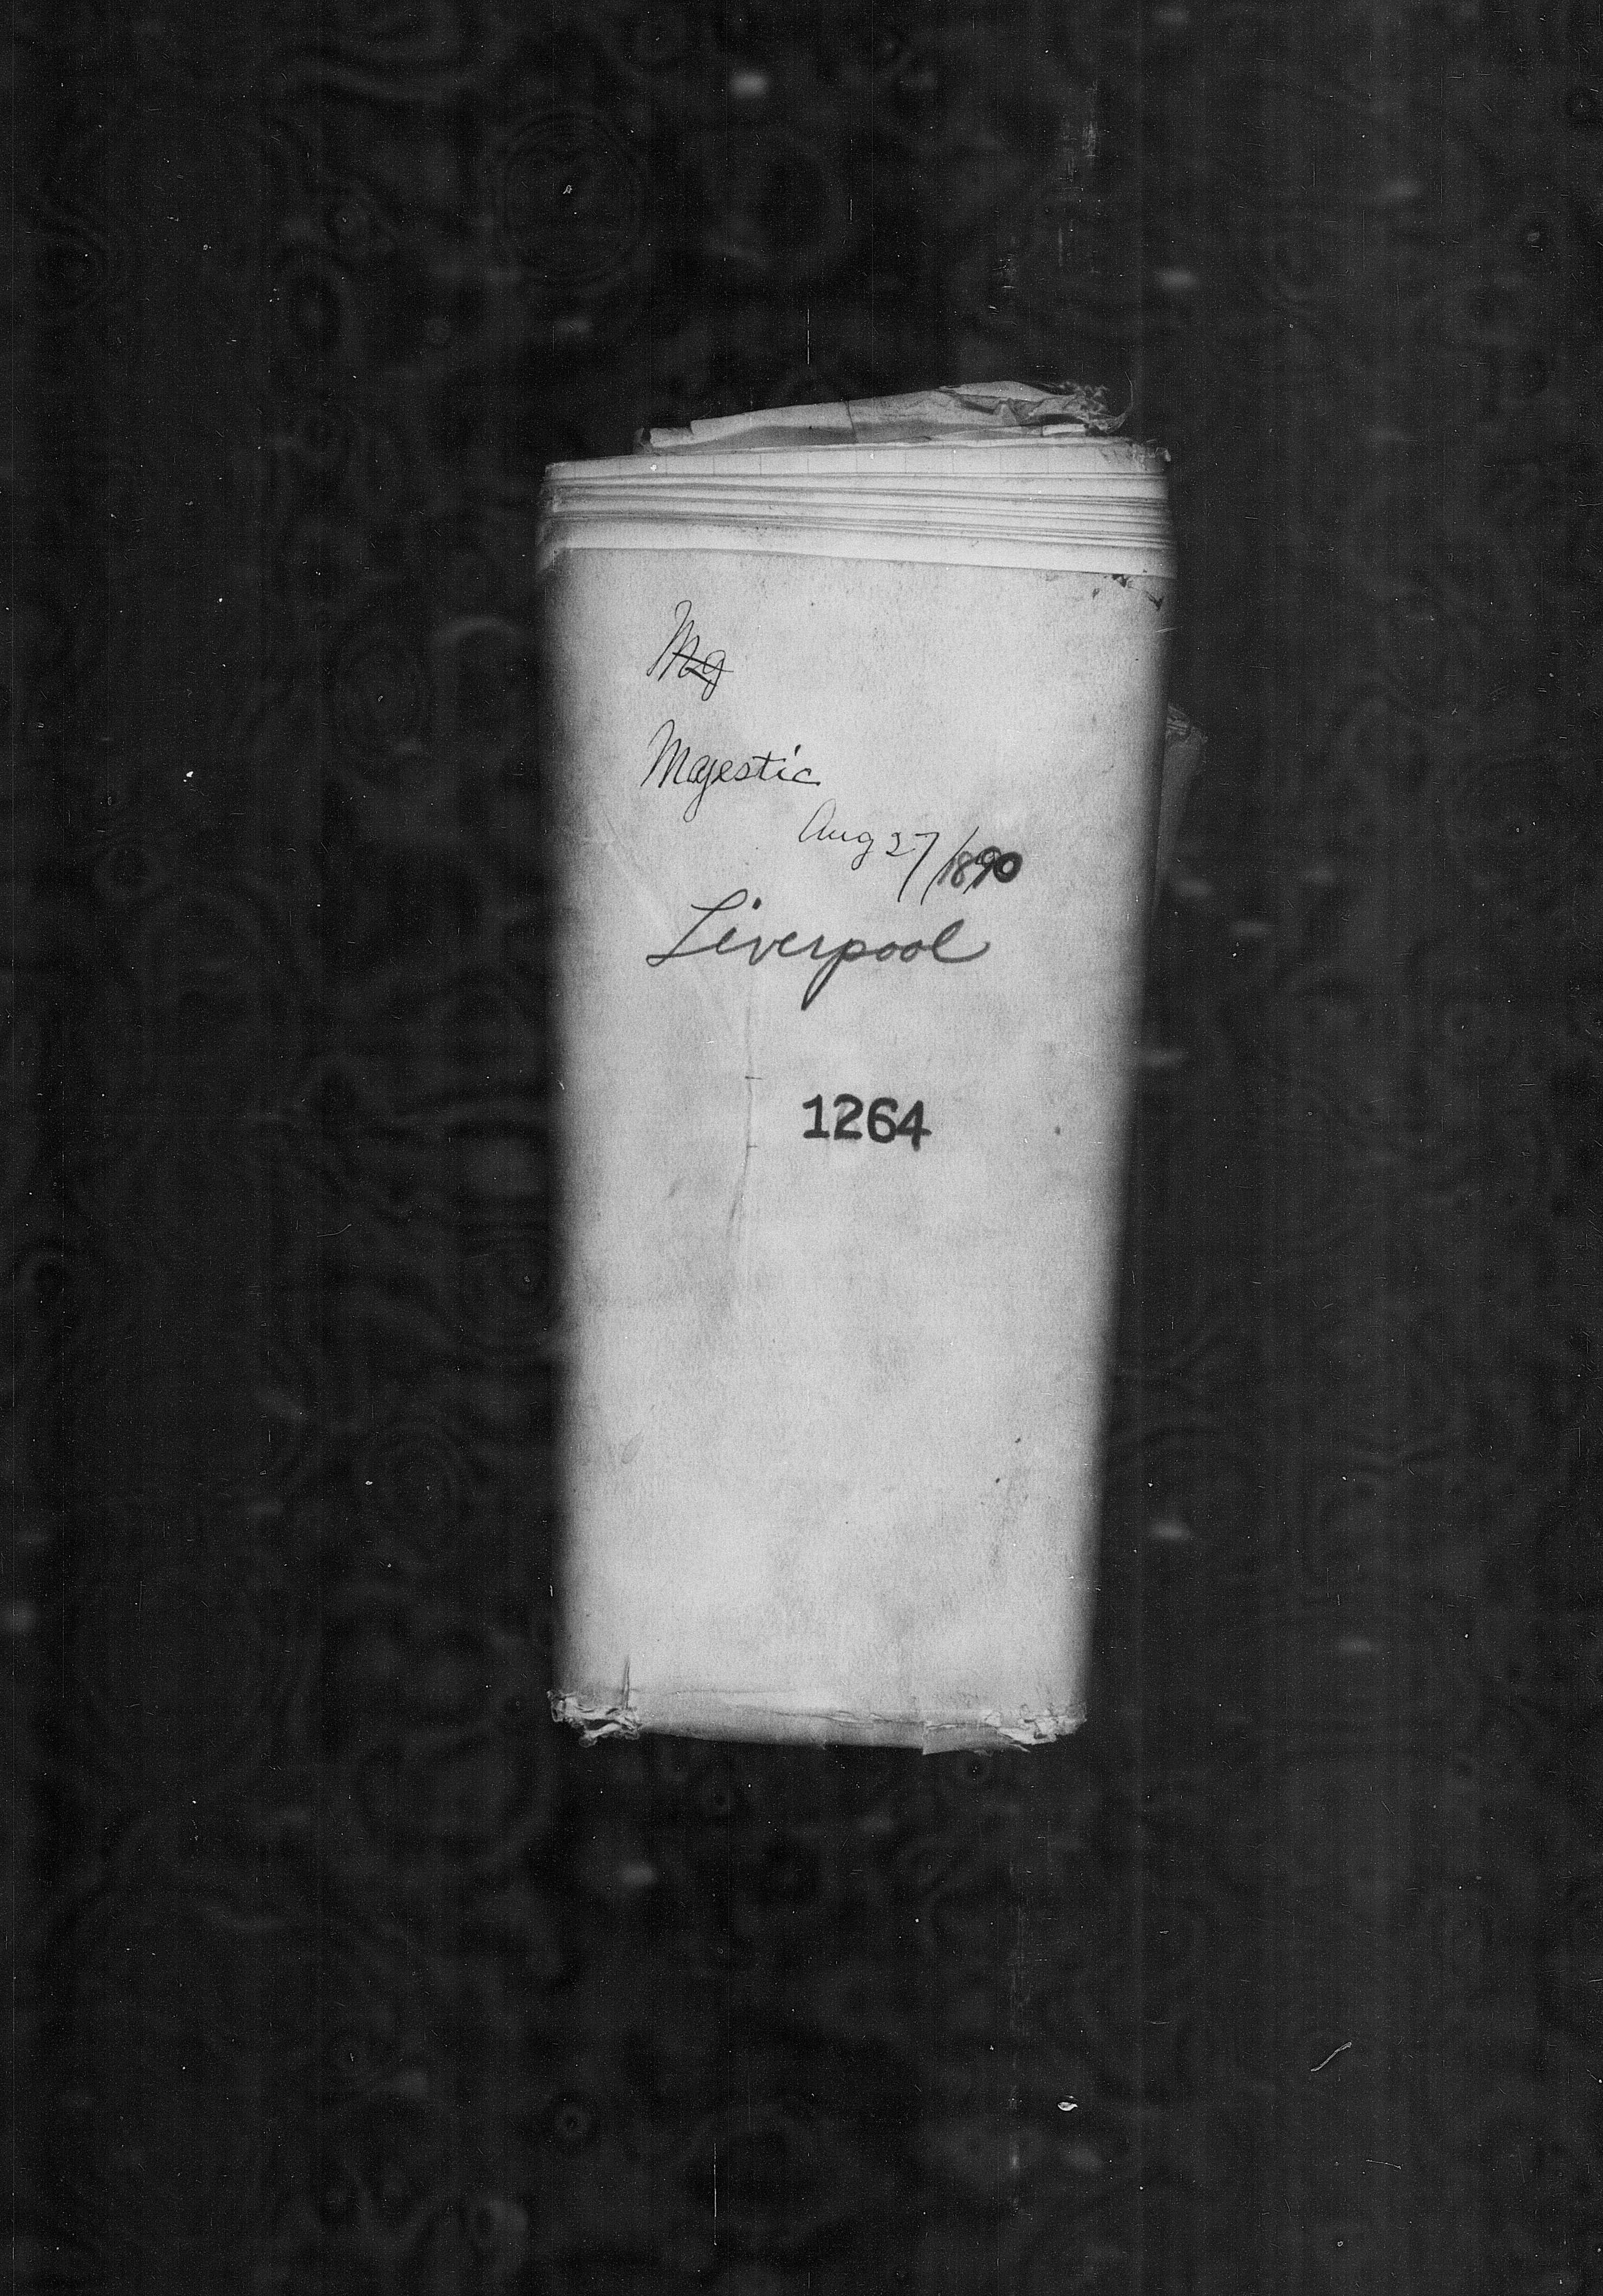 Mag
Majestic
Aug 27/1890
Liverpool
1264